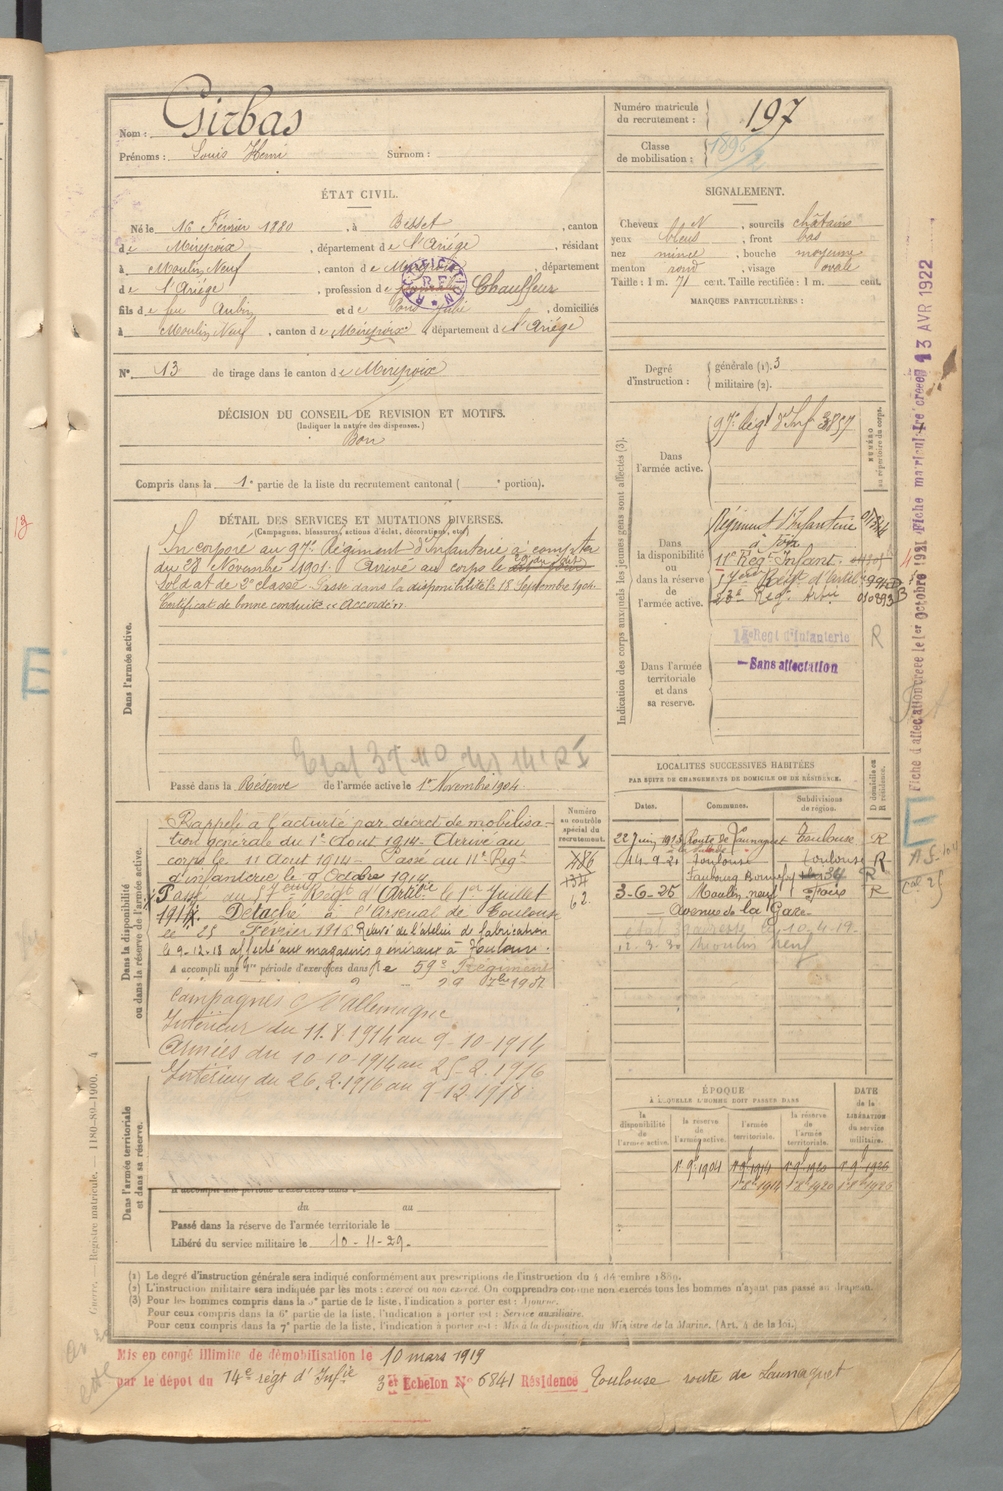 Nom : Girbas
Prénoms : Louis Henri Surnom :
Numéro matricule du recrutement : 197
Classe de mobilisation :
ÉTAT CIVIL.
Né le 16 Février 1880, à Besset, canton
de Mirepoix, département de l'Ariége, résidant
à Moulin Neuf, canton de Mirepoix, département
de l'Ariége, profession de Chauffeur
RECTIFICATION R F
fils de feu Aubin et de Pons Julie, domiciliés
à Moulin Neuf, canton de Mirepoix, département de l'Ariége
N° 13 de tirage dans le canton de Mirepoix
DÉCISION DU CONSEIL DE REVISION ET MOTIFS.
(Indiquer la nature des dispenses.)
Bon
Compris dans la 1e partie de la liste du recrutement cantonal ( e portion).
SIGNALEMENT.
Cheveux N, sourcils châtains
yeux bleus, front bas
nez mince, bouche moyenne
menton rond, visage ovale
Taille : 1 m. 71 cent. Taille rectifiée : 1 m. cent.
MARQUES PARTICULIÈRES :
Degré d'instruction : générale (1). 3
militaire (2).
DÉTAIL DES SERVICES ET MUTATIONS DIVERSES.
(Campagnes, blessures, actions d'éclat, décorations, etc.)
Dans l'armée active.
Incorporé au 97e Régiment d'Infanterie à compter
du 28 Novembre 1901. Arrivé au corps le dit jour
Soldat de 2e classe. Passé dans la disponibilité le 18 Septembre 1904.
Certificat de bonne conduite "Accordé".
Passé dans la Réserve de l'armée active le 1er Novembre 1904.
Indication des corps auxquels les jeunes gens sont affectés (3).
NUMÉRO au répertoire du corps.
Dans l'armée active.
97e Régt d'Inf 3857
Dans la disponibilité ou dans la réserve de l'armée active.
Régiment d'Infanterie
à Foix
11e Régt Infant.
57eme Regt d'Artil
23e Regt Artie 010893
14e Regt d'Infanterie R
Dans l'armée territoriale et dans sa réserve.
Sans affectation
Fiche d'affectation créée le 1er octobre 1921 Fiche matricule créée le 13 AVR 1922
Dans la disponibilité ou dans la réserve de l'armée active.
Numéro au contrôle spécial du recrutement.
Rappelé à l'activité par décret de mobilisa-
tion générale du 1er Août 1914 - Arrivé au
corps le 11 Août 1914 - Passé au 11e Regt
d'infanterie le 9 Octobre 1914
Passé au 57eme Regt d'Artie le 1er Juillet
Détaché à l'Arsenal de Toulouse
le 25 Février 1916. Relevé de l'atelier de fabrication
le 9-12-18 affecté aux magasins généraux à Toulouse.
A accompli une 1ère période d'exercices dans le 59e Régiment
campagnes c/ l'allemagne
Intérieur du 11.8.1914 au 9-10-1914
Armées du 10-10-1914 au 25-2.1916
Intérieur du 26.2.1916 au 9-12-1918
186
134
62
LOCALITÉS SUCCESSIVES HABITÉES
PAR SUITE DE CHANGEMENTS DE DOMICILE OU DE RÉSIDENCE.
Dates. Communes. Subdivisions de région. D domicile ou R résidence.
22 Juin 1913 Route de Launaguet Toulouse R
14-9-21 Toulouse Toulouse R
Faubourg Bonnefoy R
3-6-25 Moulin neuf Foix R
Avenue de la Gare
12-3-30 Moulin neuf
Dans l'armée territoriale et dans sa réserve.
du au
Passé dans la réserve de l'armée territoriale le
Libéré du service militaire le 10-11-29.
ÉPOQUE
À LAQUELLE L'HOMME DOIT PASSER DANS
la disponibilité de l'armée active. la réserve de l'armée active. l'armée territoriale. la réserve de l'armée territoriale.
DATE de la LIBÉRATION du service militaire.
1er 9bre 1904 1er 9bre 1914 1er 9bre 1920 1er 9bre 1926
(1) Le degré d'instruction générale sera indiqué conformément aux prescriptions de l'instruction du 4 décembre 1889.
(2) L'instruction militaire sera indiquée par les mots : exercé ou non exercé. On comprendra comme non exercés tous les hommes n'ayant pas passé au drapeau.
(3) Pour les hommes compris dans la 5e partie de la liste, l'indication à porter est : Ajourné.
Pour ceux compris dans la 6e partie de la liste, l'indication à porter est : Service auxiliaire.
Pour ceux compris dans la 7e partie de la liste, l'indication à porter est : Mis à la disposition du Ministre de la Marine. (Art. 4 de la loi.)
Guerre. — Registre matricule. — 1180-89-1900. 4
Mis en congé illimité de démobilisation le 10 mars 1919
par le dépot du 14e régt d'Infie 3e Echelon N° 6841 Résidence Toulouse route de Launaguet